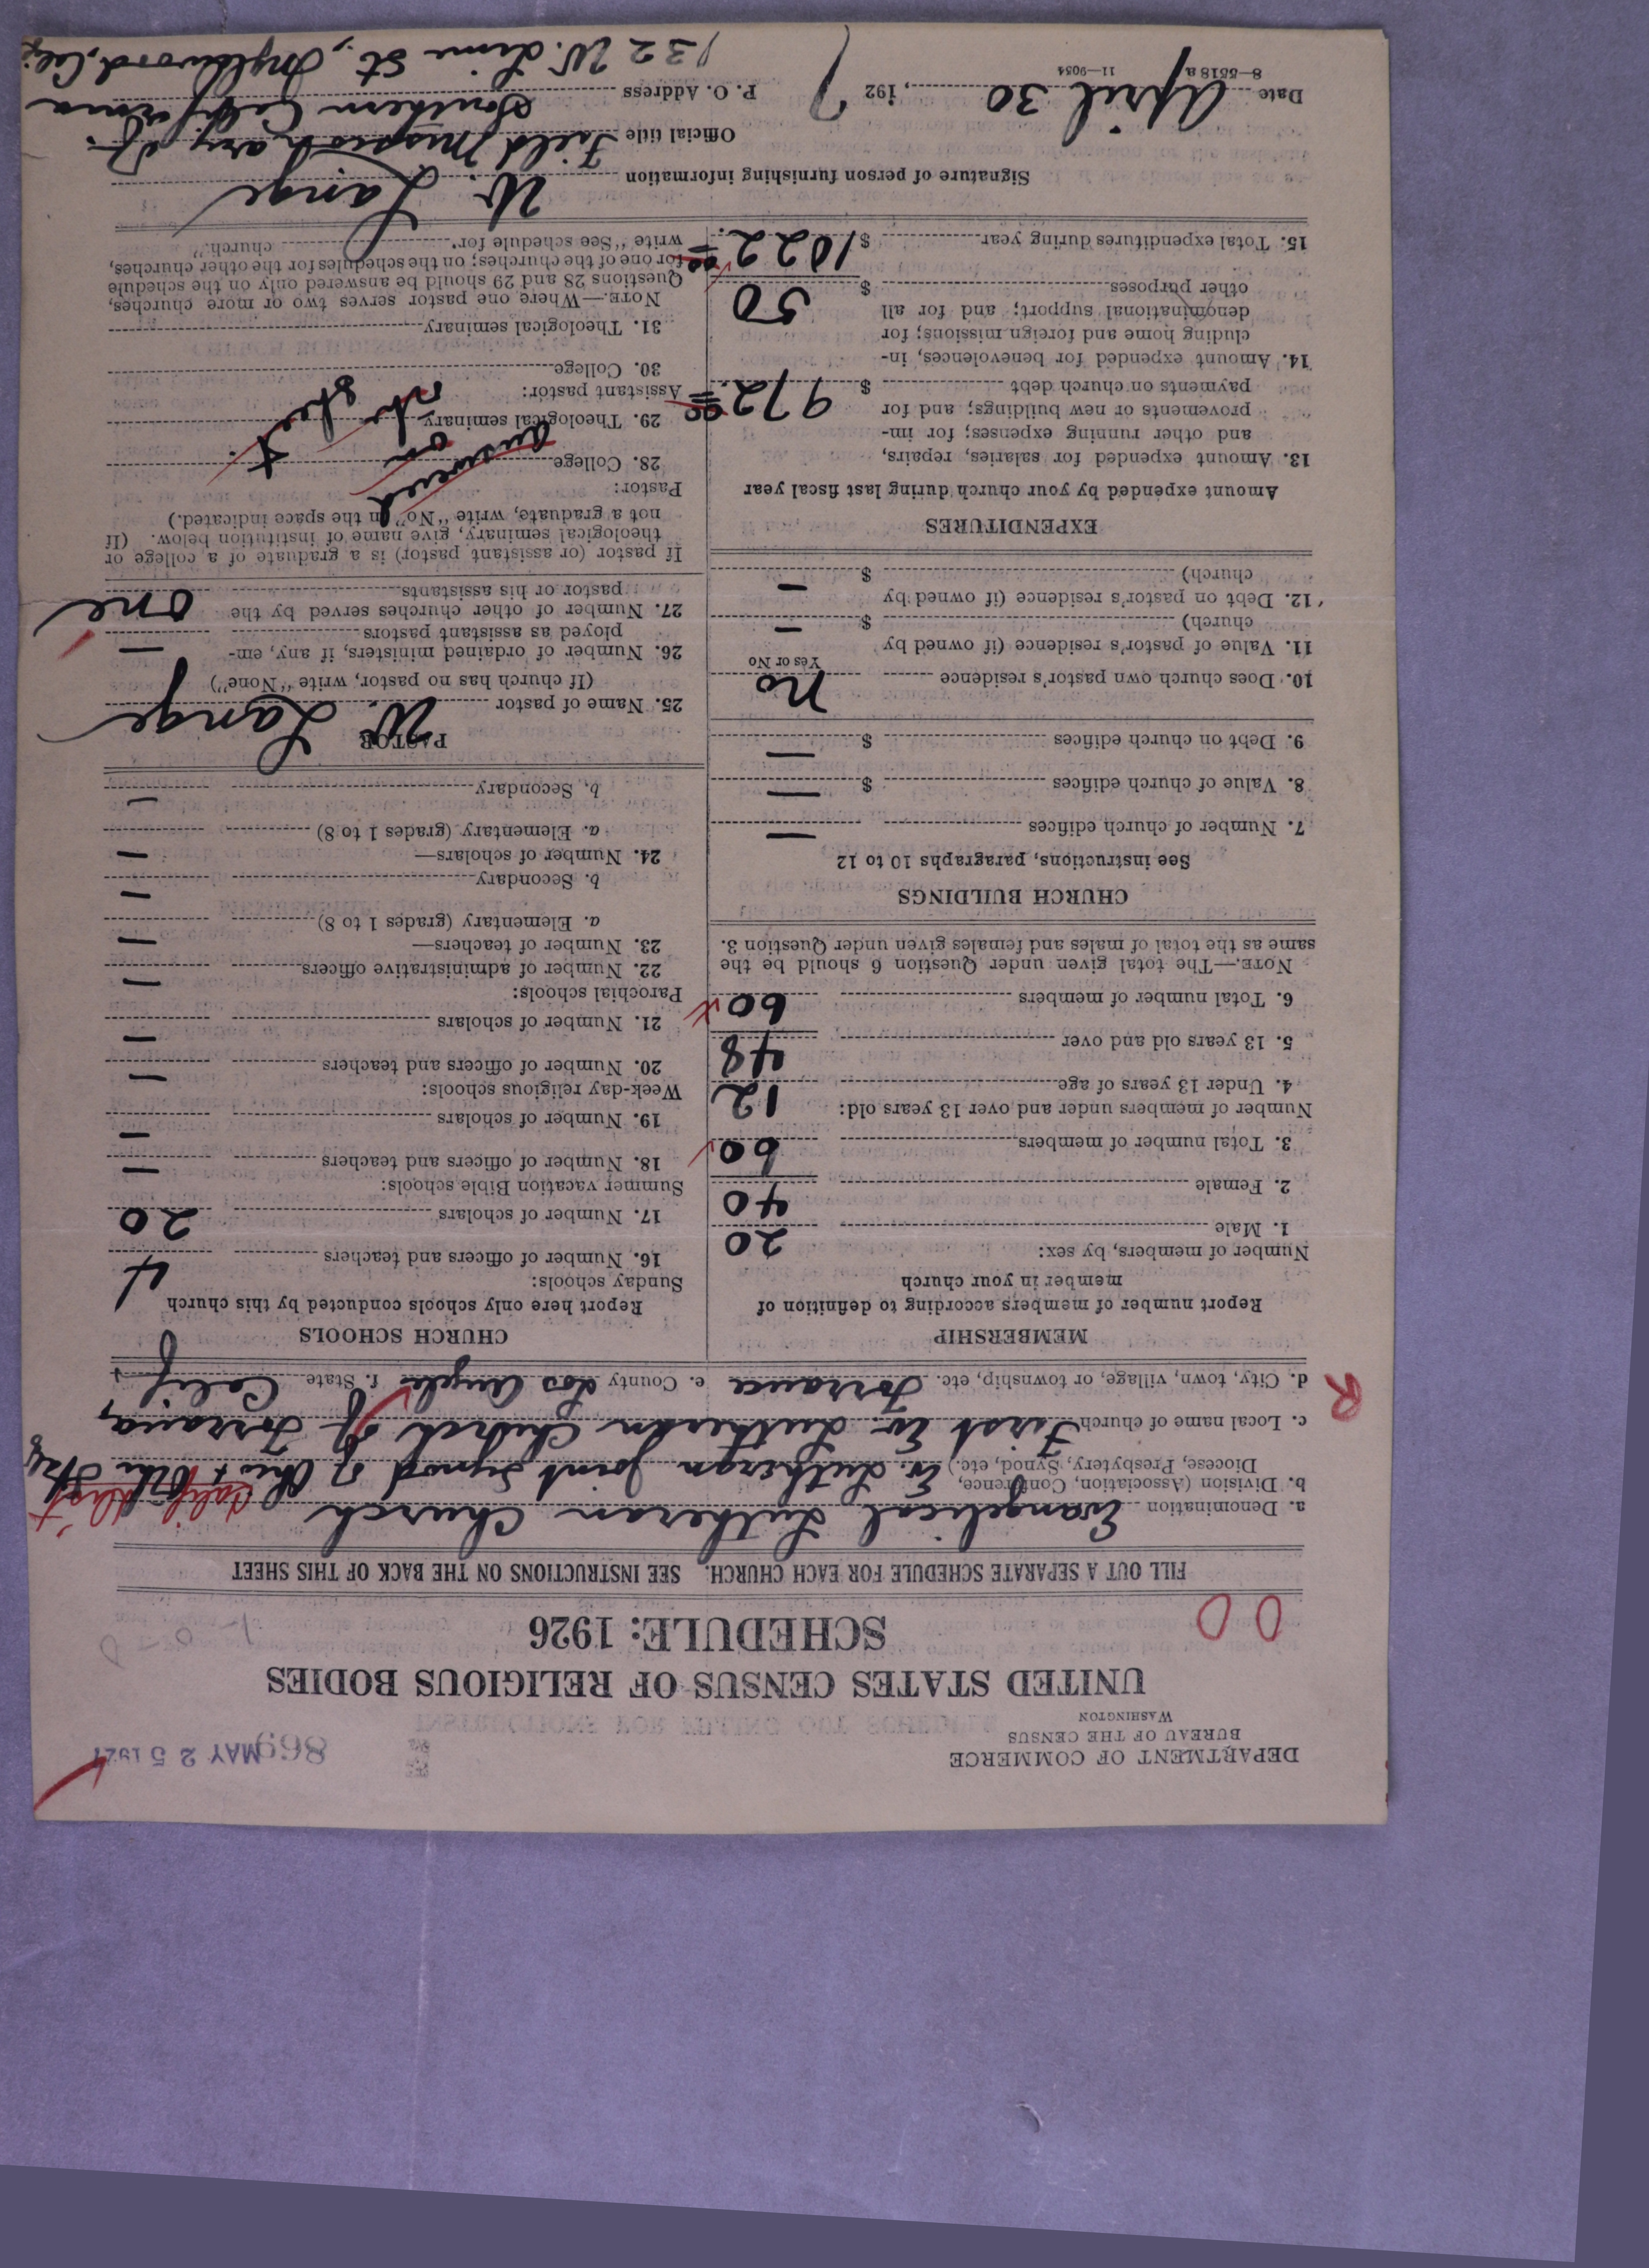 DEPARTMENT OF COMMERCE
BUREAU OF THE CENSUS
WASHINGTON
869 MAY 25 1927
UNITED STATES CENSUS OF RELIGIOUS BODIES
SCHEDULE: 1926
FILL OUT A SEPARATE SCHEDULE FOR EACH CHURCH. SEE INSTRUCTIONS ON THE BACK OF THIS SHEET
a. Denomination Evangelical Lutheran Church
b. Division (Association, Conference, Diocese, Presbytery, Synod, etc.) Ev. Lutheran Joint Synod of Ohio + Other Calif Dist
c. Local name of church First Ev. Lutheran Church of Torrance,
d. City, town, village, or township, etc. Torrance e. County Los Angeles f. State Calif
R
MEMBERSHIP
Report number of members according to definition of
member in your church
Number of members, by sex:
1. Male 20
2. Female 40
3. Total number of members 60
Number of members under and over 13 years old:
4. Under 13 years of age 12
5. 13 years old and over 48
6. Total number of members 60
NOTE.—The total given under Question 6 should be the
same as the total of males and females given under Question 3.
CHURCH BUILDINGS
See instructions, paragraphs 10 to 12
7. Number of church edifices —
8. Value of church edifices $ —
9. Debt on church edifices $ —
10. Does church own pastor's residence no
Yes or No
11. Value of pastor's residence (if owned by
church) $ —
12. Debt on pastor's residence (if owned by
church) $ —
EXPENDITURES
Amount expended by your church during last fiscal year
13. Amount expended for salaries, repairs,
and other running expenses; for im-
provements or new buildings; and for
payments on church debt $ 972.00
14. Amount expended for benevolences, in-
cluding home and foreign missions; for
denominational support; and for all
other purposes $ 50
15. Total expenditures during year $ 1022.00
CHURCH SCHOOLS
Report here only schools conducted by this church
Sunday schools:
16. Number of officers and teachers 4
17. Number of scholars 20
Summer vacation Bible schools:
18. Number of officers and teachers —
19. Number of scholars —
Week-day religious schools:
20. Number of officers and teachers —
21. Number of scholars —
Parochial schools:
22. Number of administrative officers —
23. Number of teachers—
a. Elementary (grades 1 to 8) —
b. Secondary —
24. Number of scholars—
a. Elementary (grades 1 to 8) —
b. Secondary —
PASTOR
25. Name of pastor W. Lange
(If church has no pastor, write "None")
26. Number of ordained ministers, if any, em-
ployed as assistant pastors —
27. Number of other churches served by the
pastor or his assistants one
If pastor (or assistant pastor) is a graduate of a college or
theological seminary, give name of institution below. (If
not a graduate, write "No" in the space indicated.)
Pastor:
28. College answered on
29. Theological seminary othr sheet.
Assistant pastor:
30. College
31. Theological seminary
NOTE.—Where one pastor serves two or more churches,
Questions 28 and 29 should be answered only on the schedule
for one of the churches; on the schedules for the other churches,
write "See schedule for church."
Signature of person furnishing information W. Lange
Official title Field Missionary of
Southern California
Date April 30, 1927 P. O. Address 132 W. Lime St., Inglewood, Calif
8—5518a 11—9054